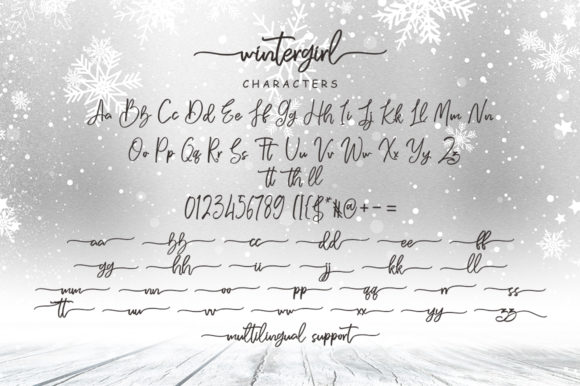 wintergirl
CHARACTERS
Aa Bb Cc Dd Ee Ff Gg Hh Ii Jj Kk Ll Mm Nn
Oo Pp Qq Rr Ss Tt Uu Vv Ww Xx Yy Zz
tt th ll
0123456789 ()[{$*#@+-=
aa bb cc dd ee ff
gg hh ii jj kk ll
mm nn oo pp qq rr ss
tt uu vv ww xx yy zz
multilingual support